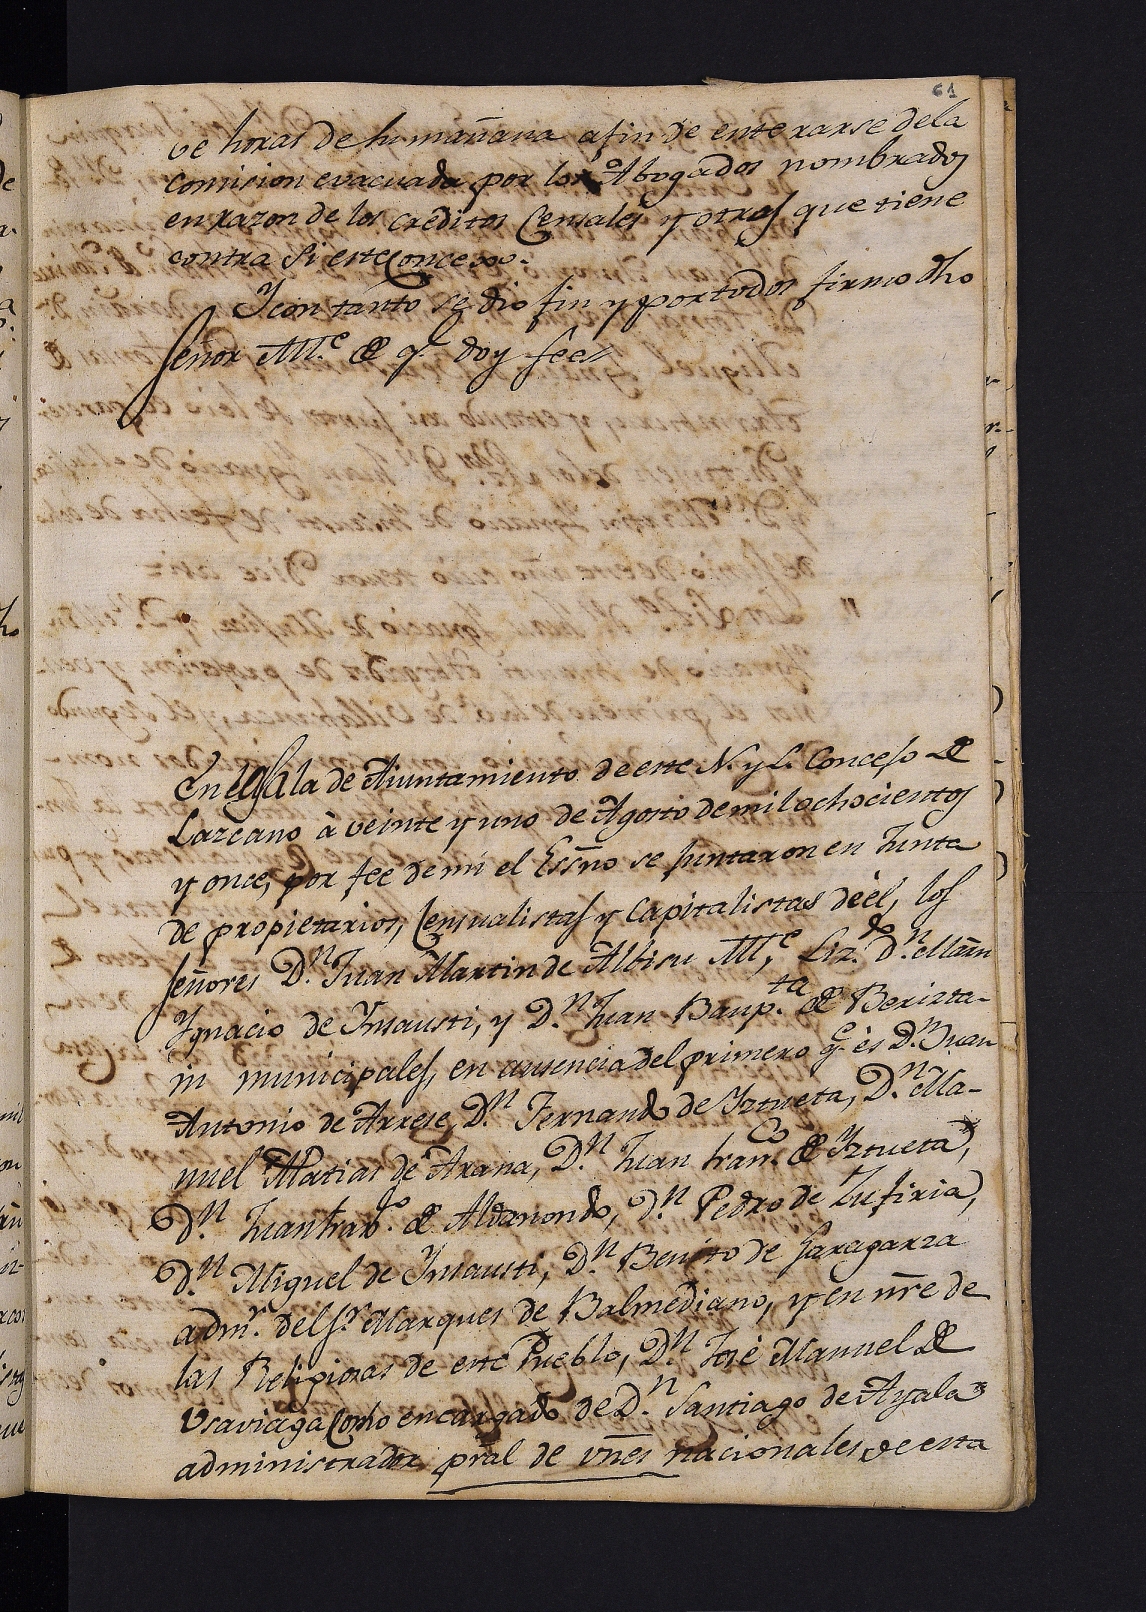 61
ve horas de la mañana afin de enterarse dela
Comision evacuada por los Abogados nombrados
en razon de los creditos Censales y otros que tiene
contra si este Concexo.
Y con tanto se dio fin y por todos firmo dho
Señor Alle. de q. doy fee
En la Sala de Aiuntamiento de este N. y L. Concejo de
Lazcano à veinte y uno de Agosto de mil ochocientos
y once, por fee de mi el Essno se juntaron en Junta
de propietarios, Censualistas y Capitalistas de èl, los
señores Dn. Juan Martin de Albisu Alle, Lizdo. Dn. Marn
Ygnacio de Ynsausti, y Dn. Juan Baupta. de Berizta-
in municipales, en ausencia del primero qe. ès Dn. Juan
Antonio de Arrese, Dn. Fernando de Yztueta, Dn. Ma-
nuel Matias de Arana, Dn. Juan Franco. de Yztueta,
Dn. Juan Franco. de Aldanondo, Dn. Pedro de Zufiria,
Dn. Miguel de Ynsausti, Dn. Benito de Garagarza
admr. del Sr. Marques de Balmediano, y en nre de
las Religiosas de este Pueblo, Dn. José Manuel de
Usaviaga como encargado de Dn. Santiago de Ayala
administrador pral de vnes nacionales de esta